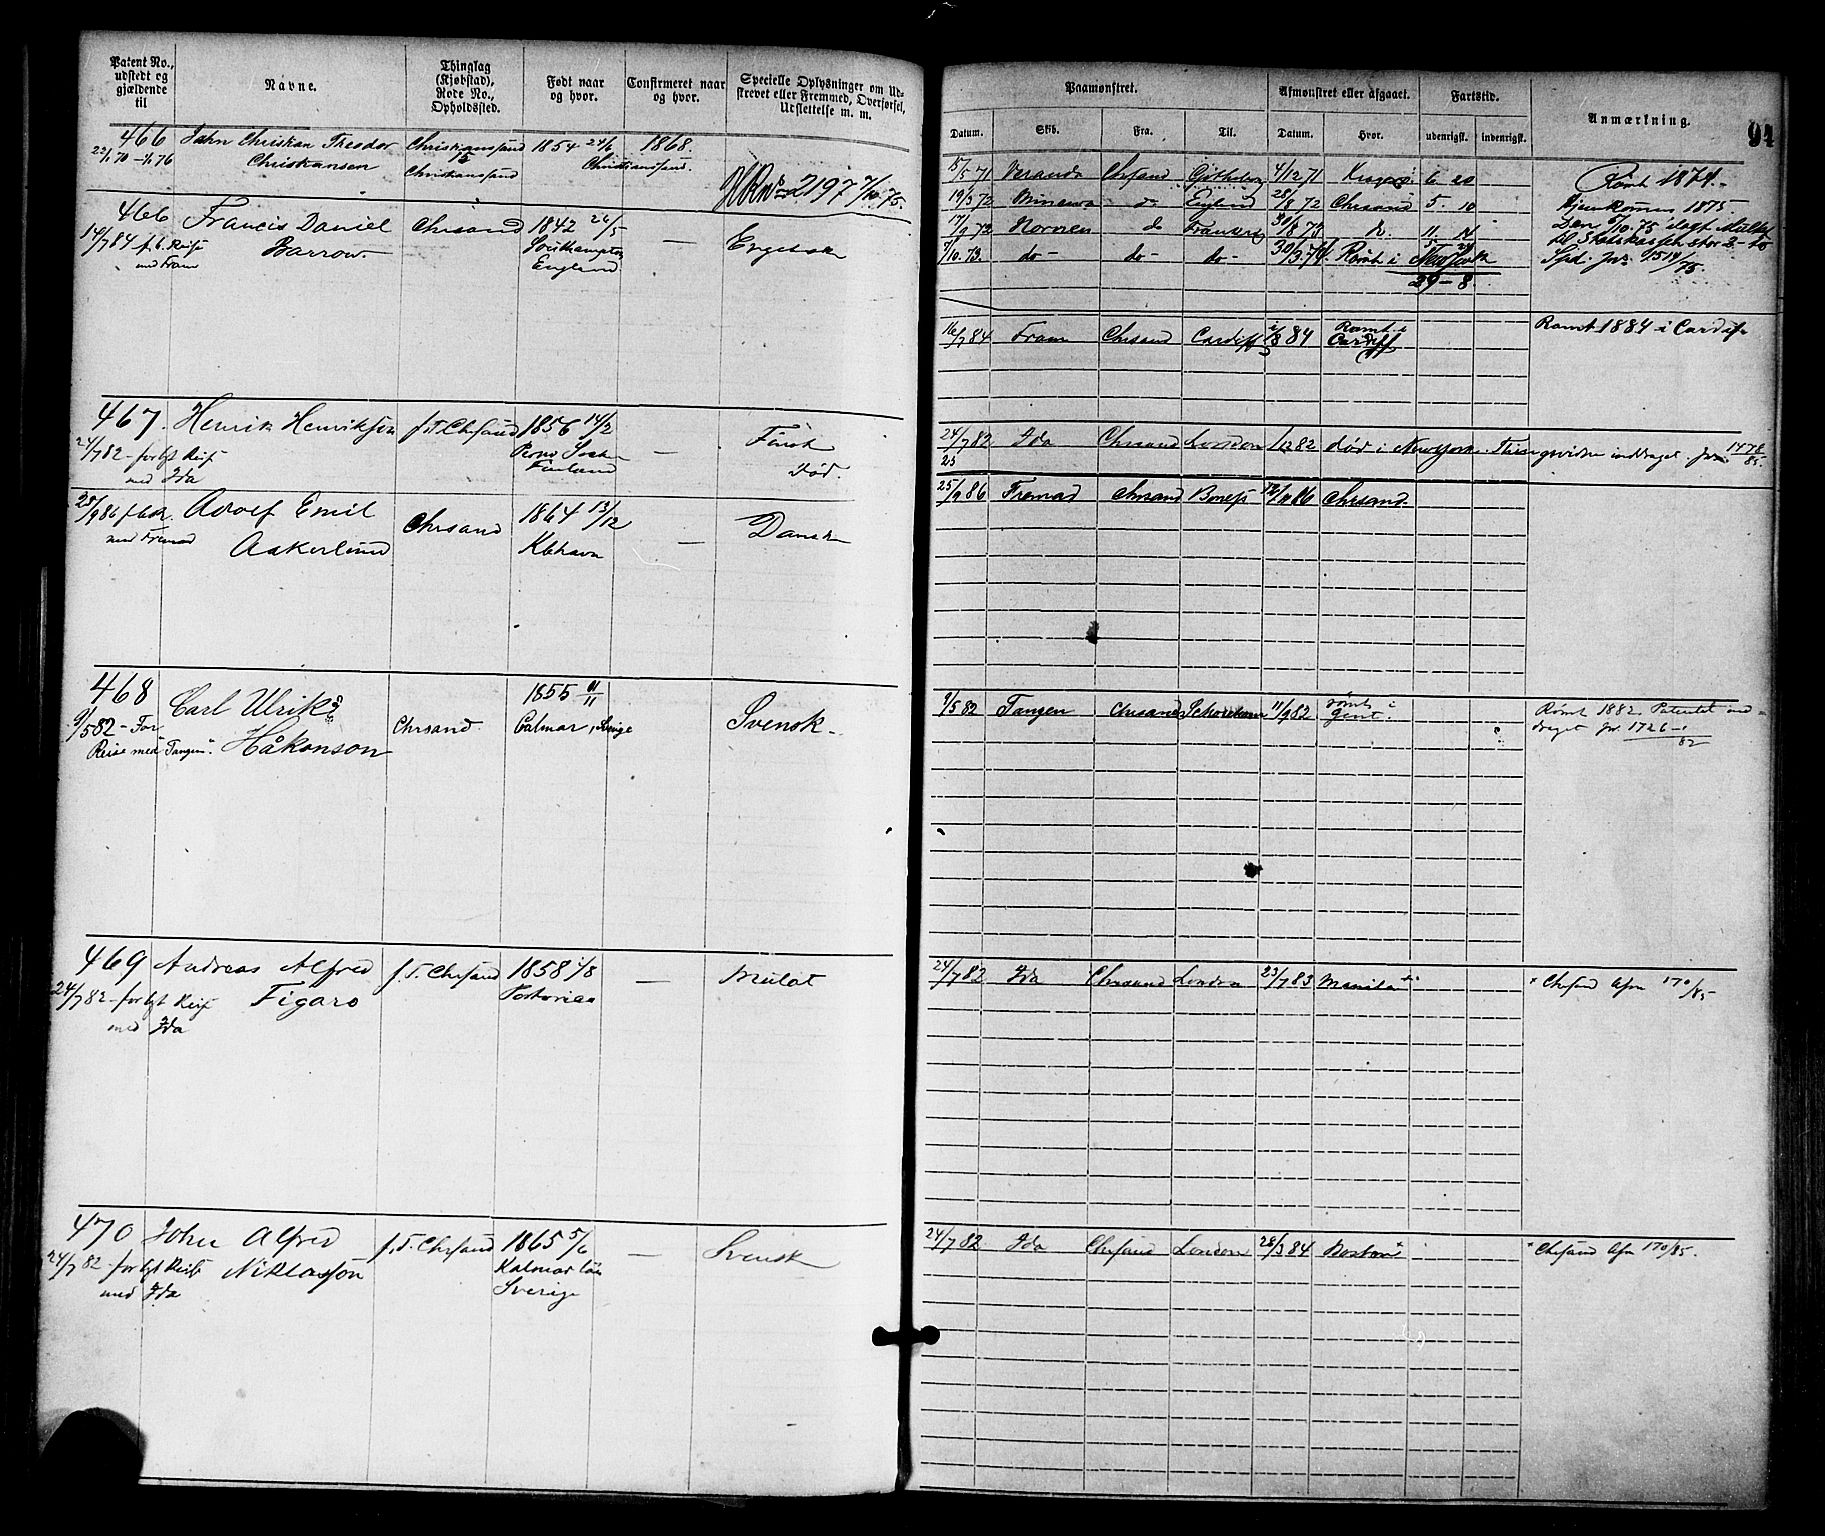 Patent No., udstedt og gjældende til
Navne.
Thinglag (Kjøbstad), Rode No., Opholdssted.
Født naar og hvor.
Confirmeret naar og hvor.
Specielle Oplysninger om Udskrevet eller Fremmed, Overførsel, Udslettelse m. m.
466
Jahn Christian Theodor
Christiansand
1854 24/6
1868.
Christiansen
15
Christiansand.
Christiansand
2197 7/10 75.
466
Francis Daniel
Chrsand
1842 26/5
—
Engelsk
14/7 84 f. b. Reise
Barrow.
Southampton
med Fram
England
467.
Henrik Henriksson
f. T. Chrsand
1856 14/2
—
Finsk
24/7 82 – for lgst Reise
Finland
Død.
med Ida
25/9 86 f. b. R.
Adolf Emil
Chrsand
1864 13/12
—
Dansk
med Fremad
Aakerlund
Kbhavn
468
Carl Ulrik
Chrsand.
1855 11/11
Svensk.
9/5 82 – For
Håkonson
Calmar, Sverige
Reise med "Tangen".
469
Andreas Alfred
f. T. Chrsand
1858 1/8
—
Mulat
24/7 82 – for lgst Reise
Figaro
med Ida
470
John Alfred
f. T. Chrsand
1865 5/6
—
Svensk
24/7 82 – for lgst Reise
Niklasson
Kalmar län
med Ida
Sverige
Paamønstret.
Afmønstret eller afgaaet.
Fartstid.
Anmærkning.
94
Datum.
Skib.
Fra.
Til.
Datum.
Hvor.
udenrigsk.
indenrigsk.
/5 71 Veranda Chrsand Gøtheborg 4/12 71 Kragerø 6. 20
Rømt 1874.
19/3 72 Minerva do England 28/8 72 Chrsand 5. 10
Hjemkommen 1875.
17/9 72 Nornen do Frankrig /8 73 do. 11. 14
Den 5/10 75 ilagt Mulkt
7/10 73. do – do – do – 30/3 74 Rømt i New York
til Statskassen stor 2 –
29 – 8.
Spd.
16/7 84 Fram Chrsand Cardiff /8 84 Rømt i Cardiff
Rømt 1884 i Cardiff
24/7 82. Ida Chrsand London /12 82 død i New York. inddraget. Jr. 1478/85.
25/9 86 Fremad Chrsand 12/11 86 Chrsand.
9/5 82 Tangen Chrsand 11/9 82 Rømt i Gent.
Rømt 1882 Patentet inddraget Jr. 1726/82
24/7 82 Ida Chrsand London 23/7 83 Manila +
+ Chrsand Afm 170/85
24/7 82 Ida Chrsand London 28/3 84 Boston +
+ Chrsand Afm 170/85.